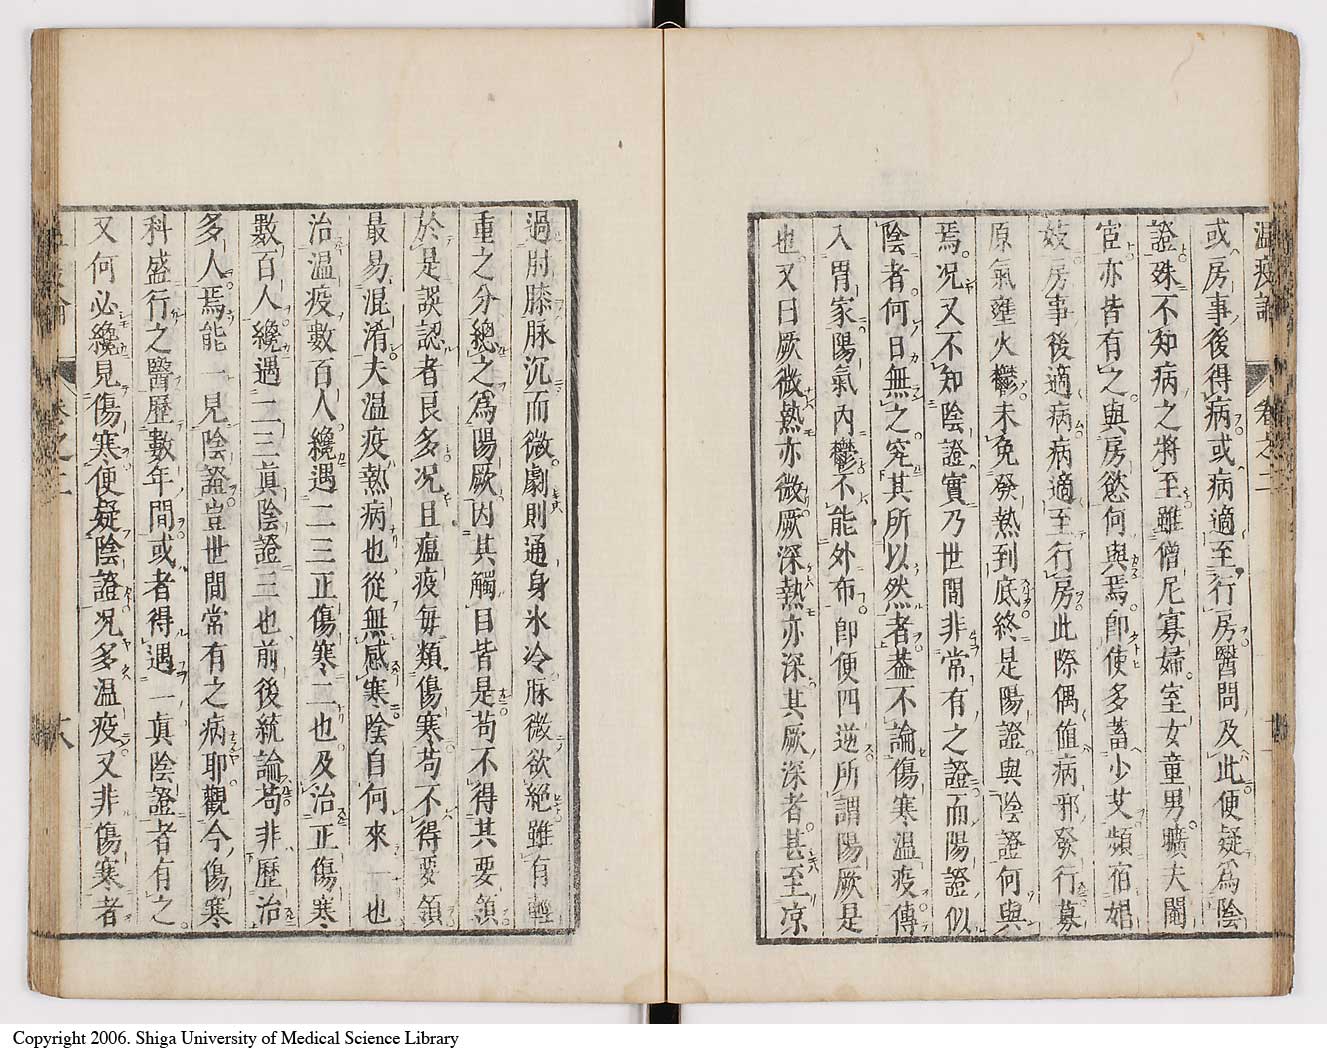 温疫論 卷之二
或房事後得病或病適至行房醫問及此便疑爲陰
證殊不知病之將至雖僧尼寡婦室女童男曠夫閹
宦亦皆有之與房慾何與焉卽使多蓄少艾頻宿娼
妓房事後適病病適至行房此際偶値病邪發行募
原氣壅火鬱未免發熱到底終是陽證與陰證何與
焉况又不知陰證實乃世間非常有之證而陽證似
陰者何日無之究其所以然者葢不論傷寒温疫傳
入胃家陽氣内鬱不能外布卽便四逆所謂陽厥是
也又曰厥微熱亦微厥深熱亦深其厥深者甚至凉
過肘膝脉沉而微劇則通身氷冷脉微欲絶雖有輕
重之分總之爲陽厥因其觸目皆是苟不得其要領
於是誤認者良多况且瘟疫毎類傷寒苟不得要領
最易混淆夫温疫熱病也從無感寒陰自何來一也
治温疫數百人纔遇二三正傷寒二也及治正傷寒
數百人纔遇二三眞陰證三也前後統論苟非歷治
多人焉能一見陰證豈世間常有之病耶觀今傷寒
科盛行之醫歷數年間或者得遇一眞陰證者有之
又何必纔見傷寒便疑陰證况多温疫又非傷寒者
卷之二